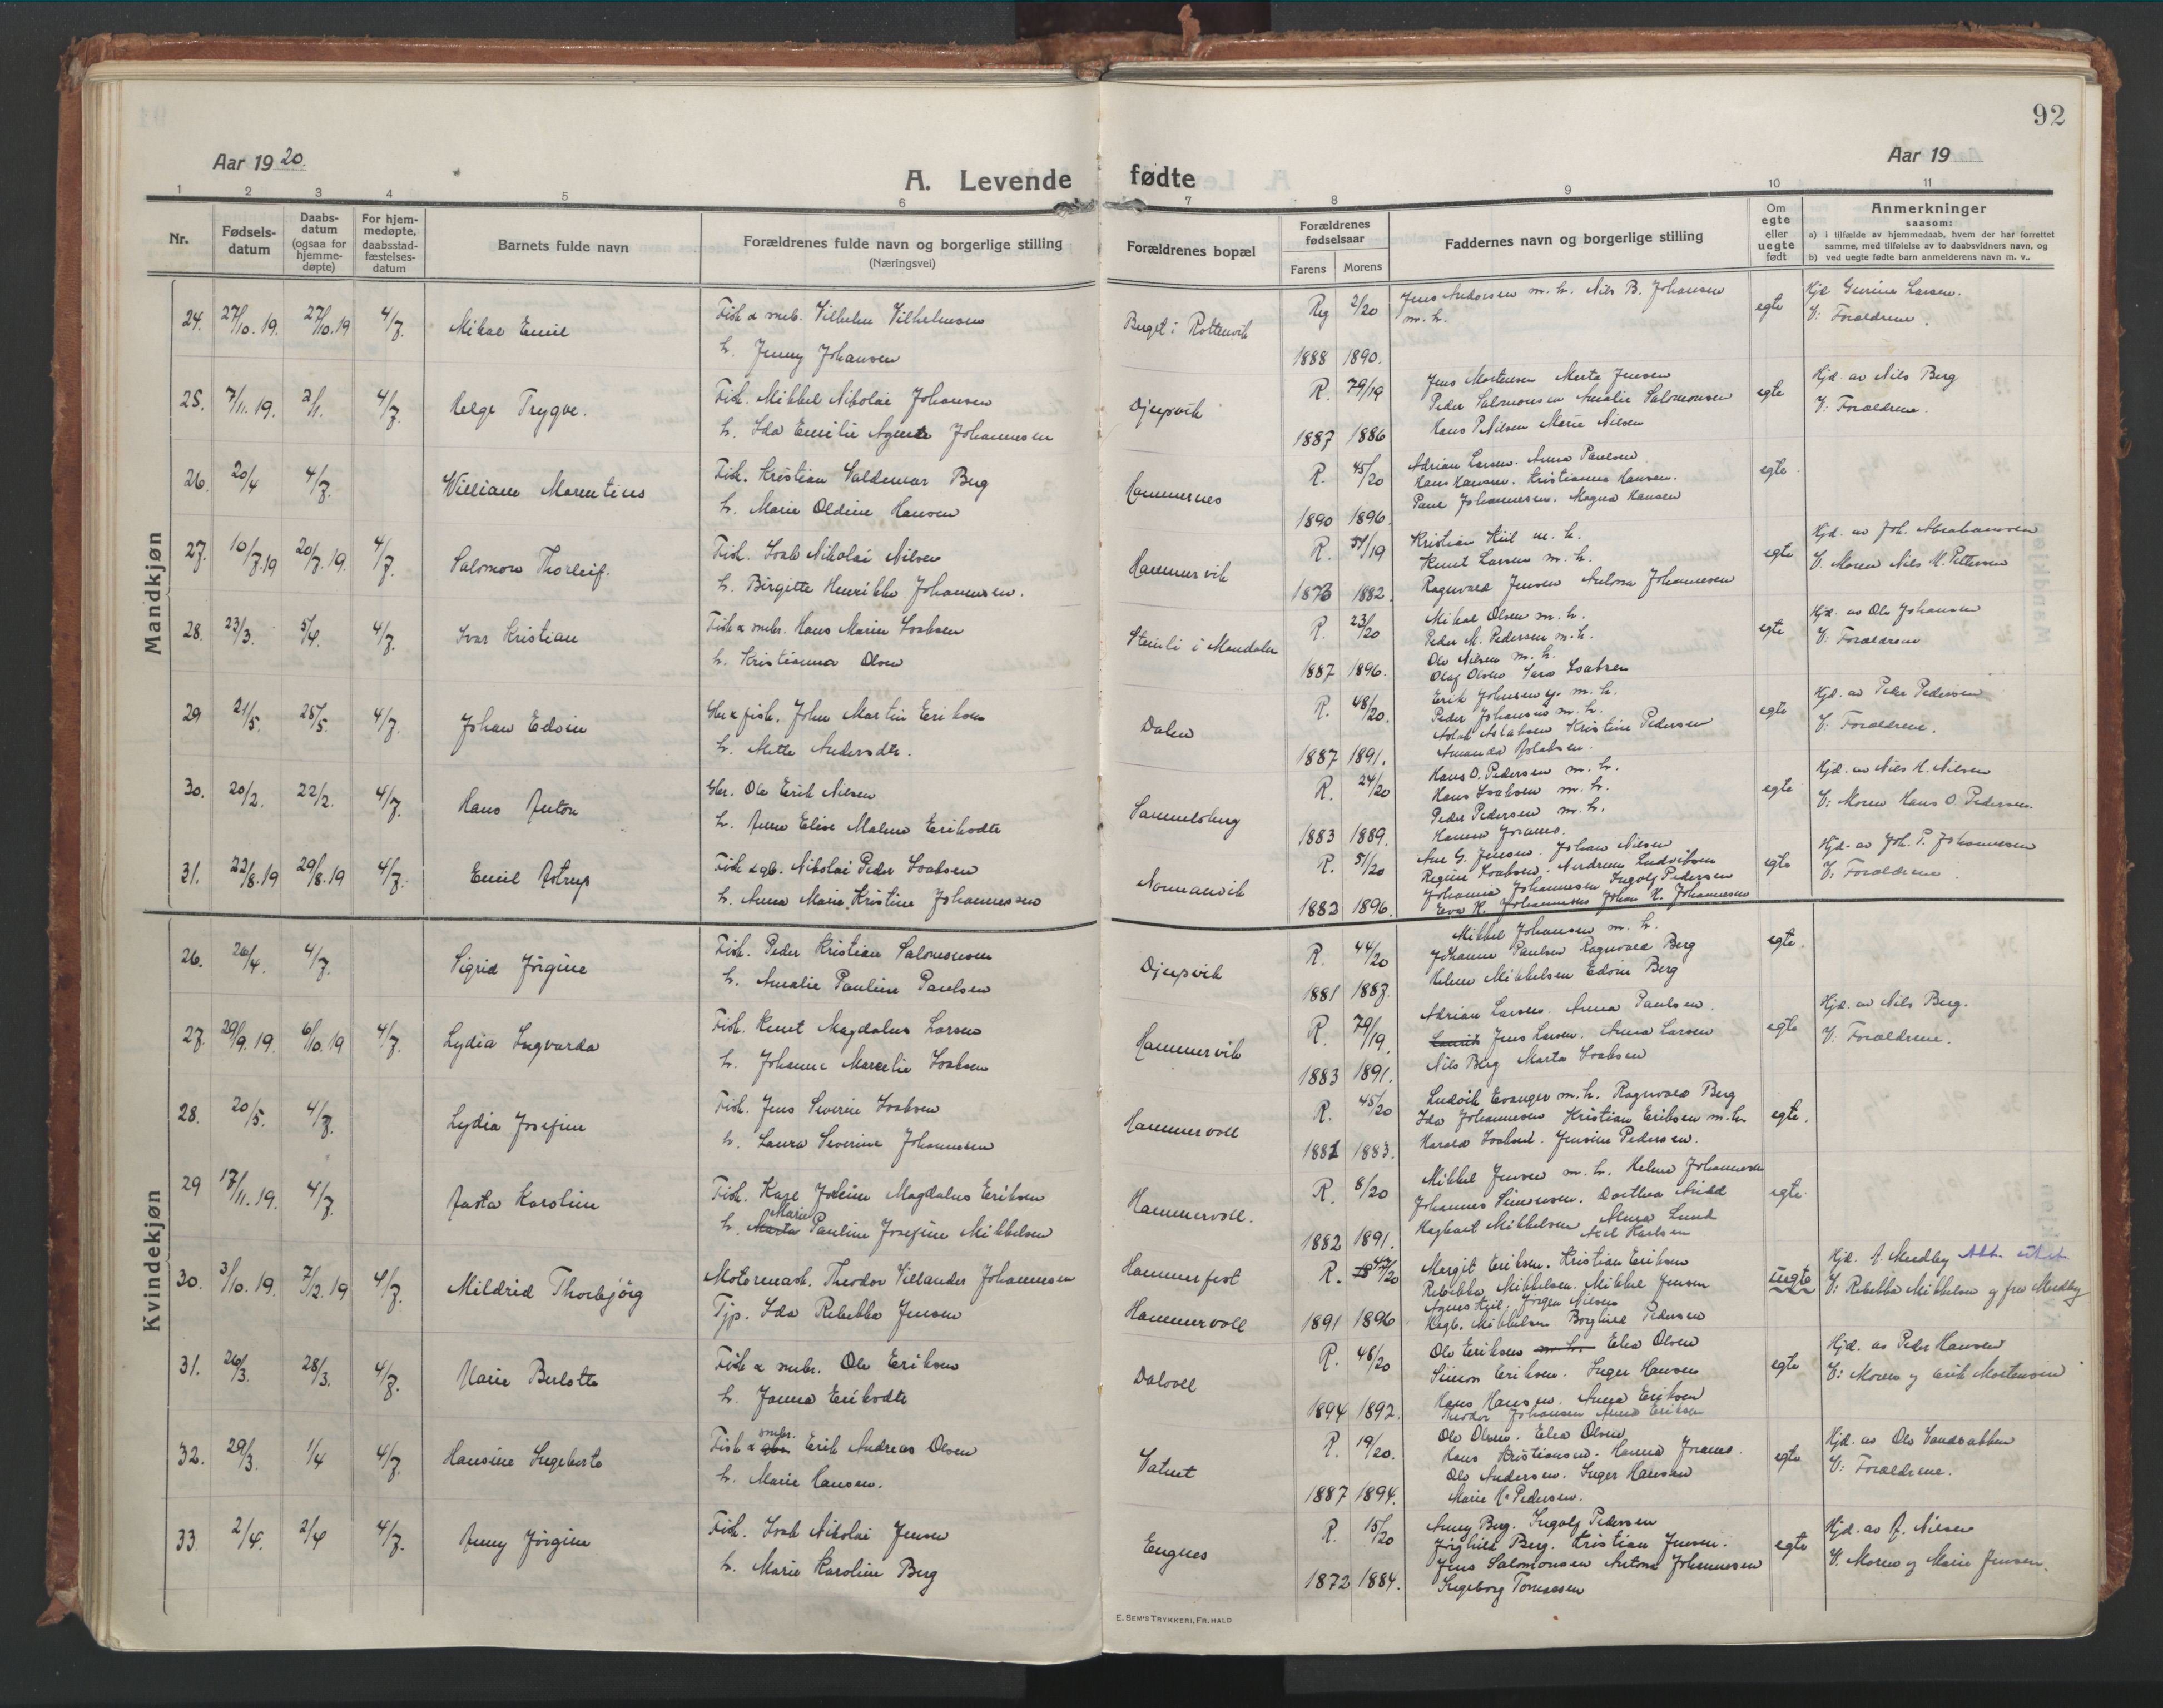 92
Aar 1920.
Aar 19
A. Levende fødte
1 2 3 4 5 6 7 8 9 10 11
Nr.
Fødsels-
datum
Daabs-
datum
(ogsaa for
hjemme-
døpte)
For hjem-
medøpte,
daabsstad-
fæstelses-
datum
Barnets fulde navn
Forældrenes fulde navn og borgerlige stilling
(Næringsvei)
Forældrenes bopæl
Forældrenes
fødselsaar
Farens Morens
Faddernes navn og borgerlige stilling
Om
egte
eller
uegte
født
Anmerkninger
saasom:
a) i tilfælde av hjemmedaab, hvem der har forrettet
samme, med tilføielse av to daabsvidners navn, og
b) ved uegte fødte barn anmelderens navn m. v..
Mandkjøn
24. 27/10.19. 27/10.19 4/7. Mikal Emil
Fisk & mbr. Vilhelm Vilhelmsen
h. Jenny Johansen
Berget i Rottenvik
Reg 2/20
1888 1890.
Jens Andersen m. h. Nils B. Johansen
m. h.
egte
Hjd. Gurine Larsen.
V: Forældrene.
25. 7/11.19. 2/1. 4/7. Helge Trygve.
Fisk. Mikkel Nikolai Johansen
h. Ida Emilie Agente Johannesen
Djupvik
R. 79/19
1887 1886
Jens Mortensen Meta Jensen
Peder Salomonsen Amalie Salomonsen
Hans P Nilsen Marie Nilsen
egte
Hjd. av Nils Berg
V: Forældrene.
26. 20/4 4/7. William Marentius
Fisk. Kristian Valdemar Berg
h. Marie Oldine Hansen
Hammernes
R. 45/20
1890 1896.
Adrian Larsen. Anna Paulsen.
Hans Hansen. Kristianna Hansen.
Paul Johannesen. Magna Hansen
egte.
27. 10/7.19 20/7.19. 4/7. Salomon Thorleif.
Fisk. Isak Nikolai Nilsen
h. Birgitte Henrikke Johannesen.
Hammervik
R. 51/19
1876 1882.
Kristian Kiil m. h.
Knut Larsen m. h.
Ragnvald Jensen Antona Johannesen
egte
Hjd. av Joh. Abrahamsen
V. Moren Nils M. Pettersen
28. 23/3. 5/4. 4/7. Ivar Kristian
Fisk & mbr. Hans Marin Isaksen
h. Kristianna Olsen
Steinli i Mandalen
R. 23/20
1887 1896.
Mikal Olsen m. h.
Peder M. Pedersen m. h.
Ole Nilsen m. h.
Olaf Olsen Sara Isaksen
egte
Hjd. av Ole Johansen
V: Forældrene
29 21/5. 25/5. 4/7. Johan Edvin
Gbr & fisk. John Martin Eriksen
h. Mette Andersdtr.
Dalen
R. 48/20.
1887 1891.
Erik Johnsen y. m. h.
Peder Johansen m. h.
Aslak Aslaksen Kristine Pedersen
Amanda Aslaksen.
egte
Hjd. av Peder Pedersen
V: Forældrene.
30. 20/2. 22/2. 4/7. Hans Anton
Gbr. Ole Erik Nilsen
h. Anne Elise Malene Eriksdtr
Sammelsberg
R. 24/20
1883 1889.
Hans O. Pedersen m. h.
Hans Isaksen m. h.
Peder Pedersen m. h.
Hanna Joramo.
egte
Hjd. av Nils H. Nilsen
V: Moren Hans O. Pedersen.
31. 22/8.19 29/8.19 4/7. Emil Astrup
Fisk & gb. Nikolai Peder Isaksen
h. Anna Marie Kristine Johannessen
Normanvik
R. 51/20
1882 1896.
Ane G. Jensen. Johan Nilsen
Regine Isaksen. Andreas Ludviksen
Johanna Johannesen Ingolf Pedersen
Eva K. Johannesen Johan K. Johannesen
egte
Hjd. av Joh. P. Johannesen
V. Forældrene.
Kvindekjøn
26. 26/4. 4/7. Sigrid Jörgine
Fisk. Peder Kristian Salomonsen
h. Amalie Pauline Paulsen
Djupvik
R. 44/20
1881 1887.
Mikkel Johansen m. h.
Johanne Paulsen Ragnvald Berg
Helene Mikkelsen Edvin Berg
egte.
27. 29/9.19. 6/10.19 4/7. Lydia Ingvarda
Fisk. Knut Magdalus Larsen
h. Johanne Marcelie Isaksen
Hammervik
R. 79/19.
1883 1891.
Adrian Larsen. Anna Paulsen.
Jens Larsen. Anna Larsen
Nils Berg Marta Isaksen
egte
Hjd. av Nils Berg.
V: Forældrene.
28. 20/5. 4/7. Lydia Josefine
Fisk. Jens Severin Isaksen
h. Laura Severine Johannessen
Hammervoll
R. 45/20
1881 1883.
Ludvik Evanger m. h. Ragnvald Berg
Ida Johannesen Kristian Eriksen m. h.
Harald Isaksen. Jensine Pedersen.
egte.
29 17/11.19. 4/7. Aasta Karoline
Fisk. Kage Joakim Magdalus Eriksen
Marie
h. Marta Pauline Josefine Mikkelsen
Hammervoll.
R. 8/20
1882 1891.
Mikkel Jensen m. h. Helene Johannesen
Johannes Simonsen. Dorthea
Hagbart Mikkelsen Alma Lund
Karlsen
egte.
30. 3/10.19. 7/12.19 4/7. Mildrid Thorbjörg
Motormask. Theodor Villander Johannesen
Tjp. Ida Rebekka Jensen
Hammerfest
Hammervoll
R. 47/20
1891 1896
Margit Eriksen. Kristian Eriksen
Rebekka Mikkelsen. Mikkel Jensen
Agnes Kiil. Jørgen Nilsen
Hagb. Mikkelsen Borghild Pedersen
uegte
Hjd. A. Medby
V: Rebekka Mikkelsen og fru Medby
31. 26/3. 28/3. 4/7. Marie Berlotte
Fisk & mbr. Ole Eriksen
h. Janna Eriksdtr
Dalvoll
R. 48/20
1894 1892.
Ole Eriksen m. h. Elea Olsen
Simon Eriksen. Inger Hansen
Hans Hansen. Anna Eriksen
Theodor Johansen Anna Eriksen
egte
Hjd. av Peder Hansen
V: Moren og Erik Mortensen
32. 29/3. 1/4 4/7. Hansine Ingeberta
mbr.
Fisk & gbr. Erik Andreas Olsen
h. Marie Hansen.
Vatnet
R. 19/20.
1887 1894.
Ole Olsen. Elea Olsen
Hans Kristiansen. Hanna Joramo.
Ole Andersen. Inger Hansen
Marie H. Pedersen.
egte
Hjd. av Ole Sandbakken
V: Forældrene.
33. 2/4. 2/4 4/7. Anny Jörgine
Fisk. Isak Nikolai Jensen
h. Marie Karoline Berg
Engnes
R. 15/20
1872 1884.
Anny Berg. Ingolf Pedersen
Jörghild Berg. Kristian Jensen.
Jens Salomonsen Antona Johannesen
Ingeborg Tomassen
egte
Hjd. av A. Nilsen
V. Moren og Marie Jensen.
E. SEM'S TRYKKERI, FR.HALD